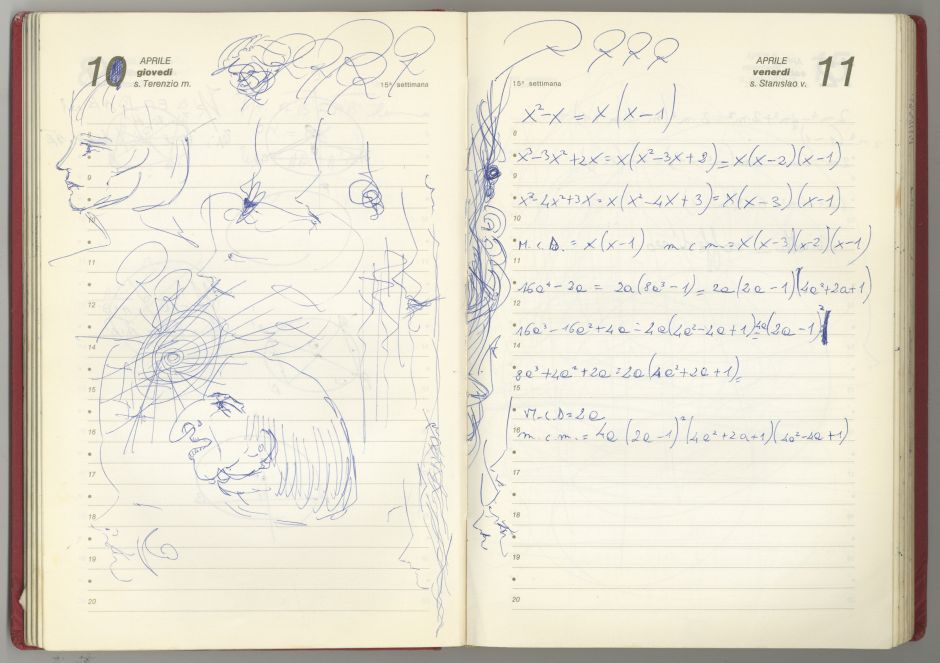 10
APRILE
giovedì
s. Terenzio m.
15ª settimana
8
9
10
11
12
14
15
16
17
18
19
20
15ª settimana
APRILE
venerdì
s. Stanislao v.
11
x²-x = x(x-1)
8
x³-3x²+2x=x(x²-3x+2)=x(x-2)(x-1)
9
x³-4x²+3x=x(x²-4x+3)=x(x-3)(x-1)
10
M.C.D.=x(x-1) m.c.m.=x(x-3)(x-2)(x-1)
11
16a⁴-2a = 2a(8a³-1)=2a(2a-1)(4a²+2a+1)
12
16a³-16a²+4a=4a(4a²-4a+1)=4a(2a-1)²
14
8a³+4a²+2a=2a(4a²+2a+1)=
15
M.C.D=2a
16
m.c.m.=4a(2a-1)²(4a²+2a+1)(4a²-4a+1)
17
18
19
20